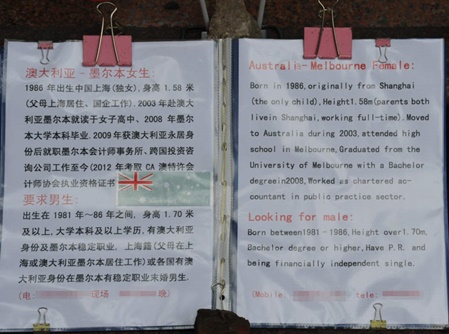 澳大利亚－墨尔本女生：
1986 年出生中国上海 (独女), 身高 1.58 米
(父母上海居住、国企工作), 2003 年赴澳大
利亚墨尔本就读于女子高中、2008 年墨尔
本大学本科毕业. 2009年获澳大利亚永居身
份后就职墨尔本会计师事务所、跨国投资咨
询公司工作至今(2012 年考取 CA 澳特许会
计师协会执业资格证书
要求男生：
出生在 1981 年～86 年之间, 身高 1.70 米
及以上, 大学本科及以上学历, 有澳大利亚
身份及墨尔本稳定职业, 上海籍 (父母在上
海或澳大利亚墨尔本居住工作) 或各国有澳
大利亚身份在墨尔本有稳定职业未婚男生.
(电 现场 晚)
Australia-Melbourne Female:
Born in 1986, originally from Shanghai
(the only child), Height1.58m(parents both
livein Shanghai,working full-time). Moved
to Australia during 2003, attended high
school in Melbourne, Graduated from the
University of Melbourne with a Bachelor
degreein2008, Worked as chartered ac-
countant in public practice sector.
Looking for male:
Born between1981－1986, Height over1.70m,
Bachelor degree or higher, Have P.R. and
being financially independent single.
(Mobile: tele: )